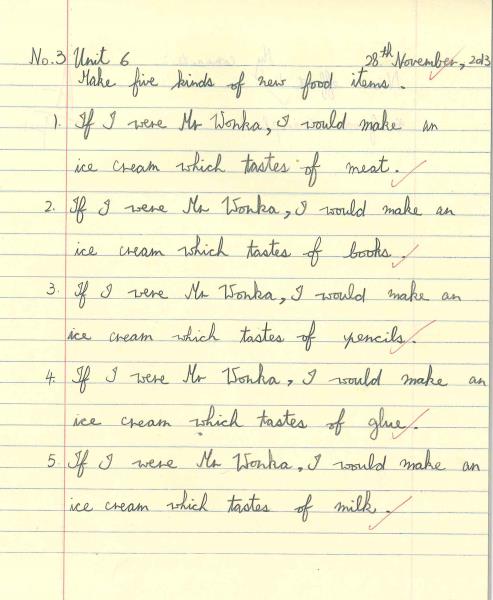 No.3 Unit 6 28th November, 2013
Make five kinds of new food items.
1. If I were Mr Wonka, I would make an
ice cream which tastes of meat.
2. If I were Mr Wonka, I would make an
ice cream which tastes of books.
3. If I were Mr Wonka, I would make an
ice cream which tastes of pencils.
4. If I were Mr Wonka, I would make an
ice cream which tastes of glue.
5. If I were Mr Wonka, I would make an
ice cream which tastes of milk.